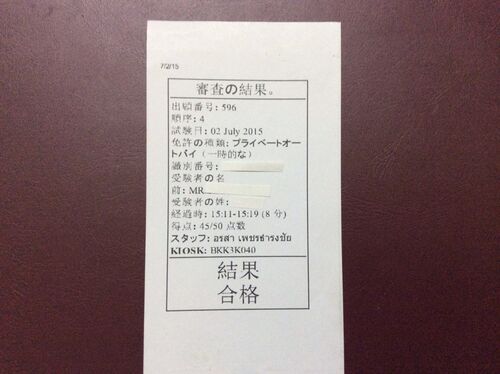 7/2/15
審査の結果。
出願番号: 596
順序: 4
試験日: 02 July 2015
免許の種類: プライベートオー
トバイ (一時的な)
識別番号:
受験者の名
前: MR.
受験者の姓:
経過時: 15:11-15:19 (8 分)
得点: 45/50 点数
スタッフ: อรสา เพชรธำรงชัย
KIOSK: BKK3K040
結果
合格